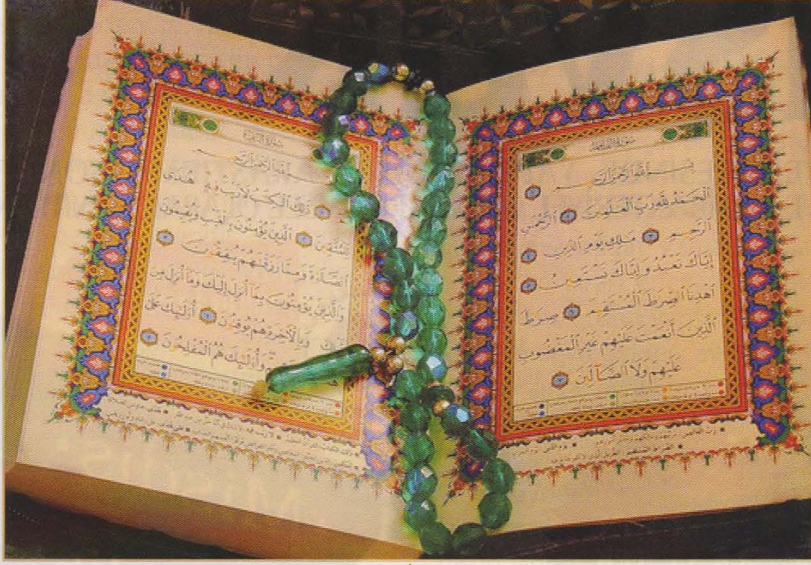 سورة الفاتحة
بسم الله الرحمن الرحيم
الحمد لله رب العلمين الرحمن
الرحيم ملك يوم الدين
إياك نعبد وإياك نستعين
اهدنا الصرط المستقيم صرط
الذين أنعمت عليهم غير المغضوب
عليهم ولا الضالين
سورة البقرة
الله الرحمن الرحيم
ذلك الكتب لا ريب فيه هدى
للمتقين الذين يؤمنون بالغيب ويقيمون
الصلوة ومما رزقنهم ينفقون
والذين يؤمنون بما أنزل إليك وما أنزل من
وبالآخرة هم يوقنون أولئك على
وأولئك هم المفلحون